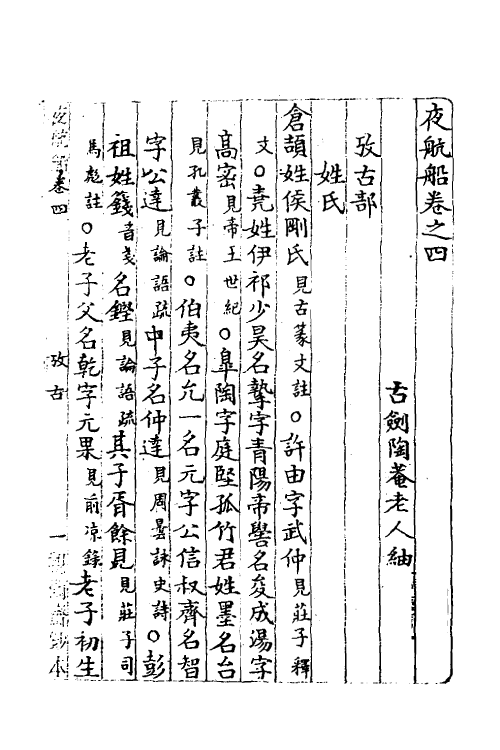 夜航船卷之四
古劍陶菴老人紬
攷古部
姓氏
倉頡姓侯剛氏見古篆文註○許由字武仲見莊子釋
文○堯姓伊祁少昊名摯字青陽帝嚳名夋成湯字
高密見帝王世紀○臯陶字庭堅孤竹君姓墨名台
見孔叢子註○伯夷名允一名元字公信叔齊名智
字公達見論語疏中子名仲達見周曇詠史詩○彭
祖姓籛音戔名鏗見論語疏其子胥餘見見莊子司
馬彪註○老子父名乾字元果見前凉錄老子初生
卷四 攷古 一 本